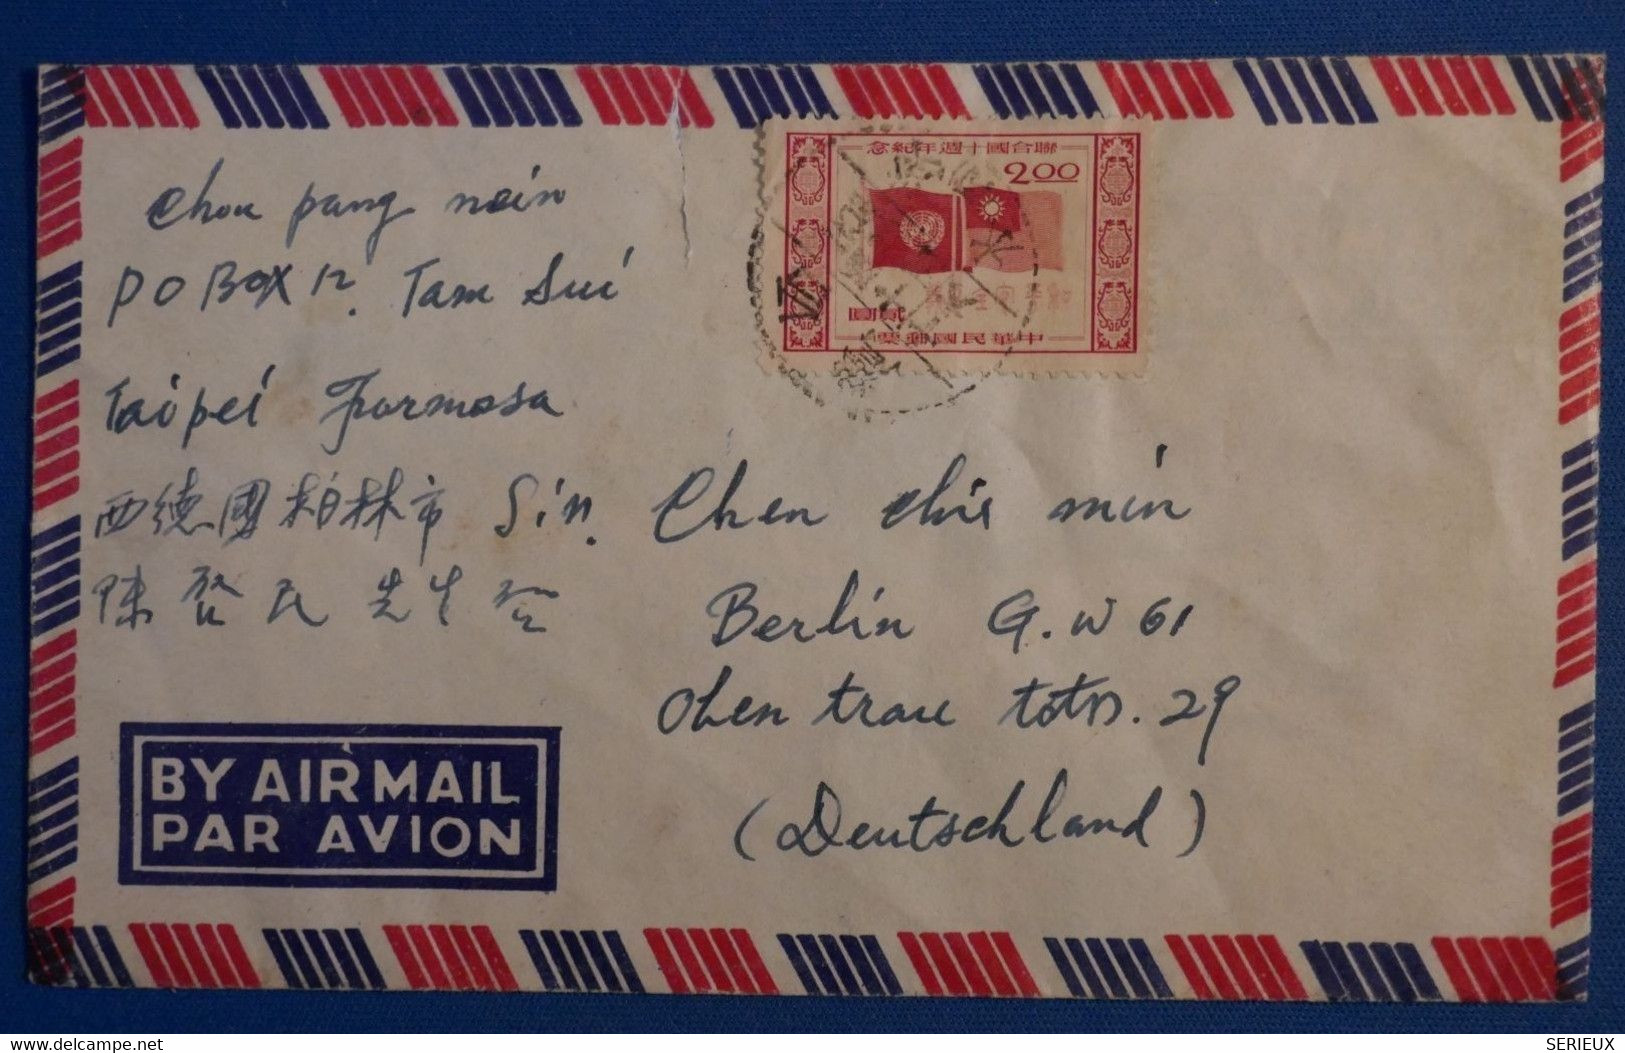 聯合國十週年紀念
2.00
貳圓
中華民國郵票
Chou pang nein
PO BOX 12. Tam Sui
Taipei Formosa
西德國柏林市 Sin.
陳啓民先生启
Chen chie min
Berlin G.W 61
Ohen trau totrs. 29
(Deutschland)
BY AIR MAIL
PAR AVION
www.delcampe.net
SERIEUX